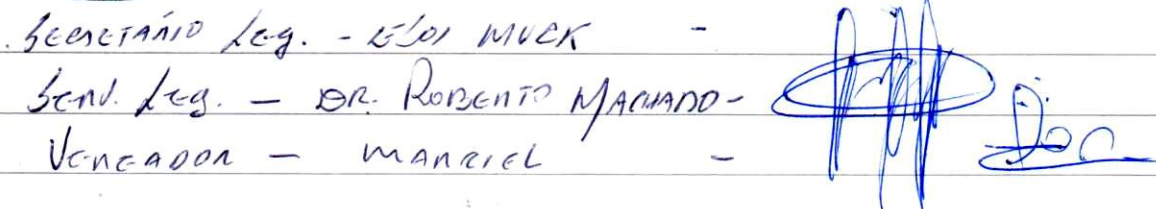 Secretário Leg. - Elói Muck -
Serv. Leg. - DR. Roberto Machado -
Vereador - Marziel -